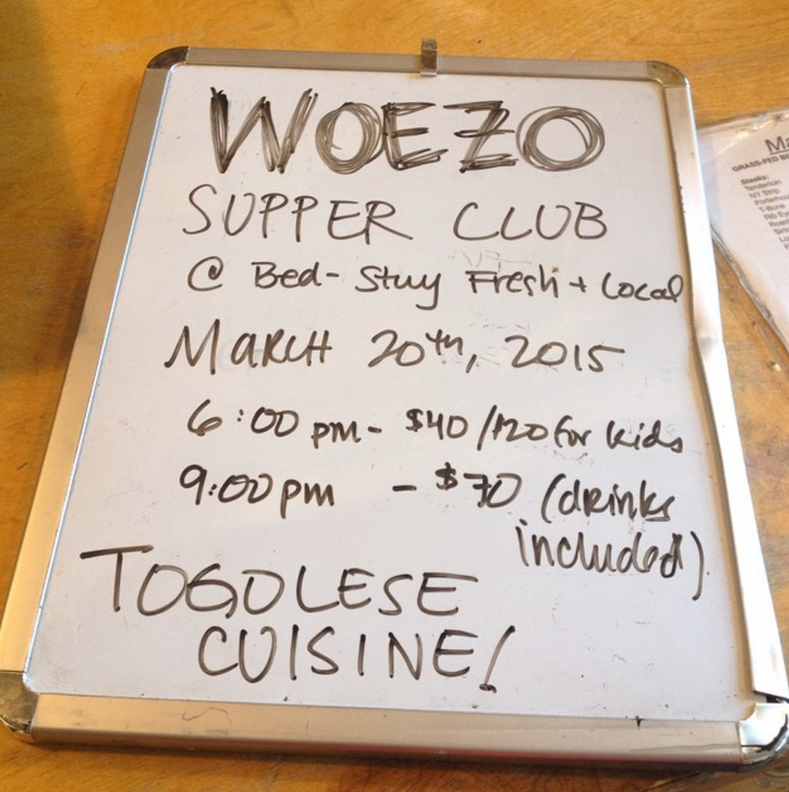 WOEZO
SUPPER CLUB
@ Bed-Stuy Fresh + Local
MARCH 20th, 2015
6:00 pm - $40/$20 for kids
9:00 pm - $70 (drinks
included)
TOGOLESE
CUISINE!
Ma
GRASS-FED BE
Steaks:
Tenderloin
NY Strip
Porterhou
T-Bone
Rib Eye